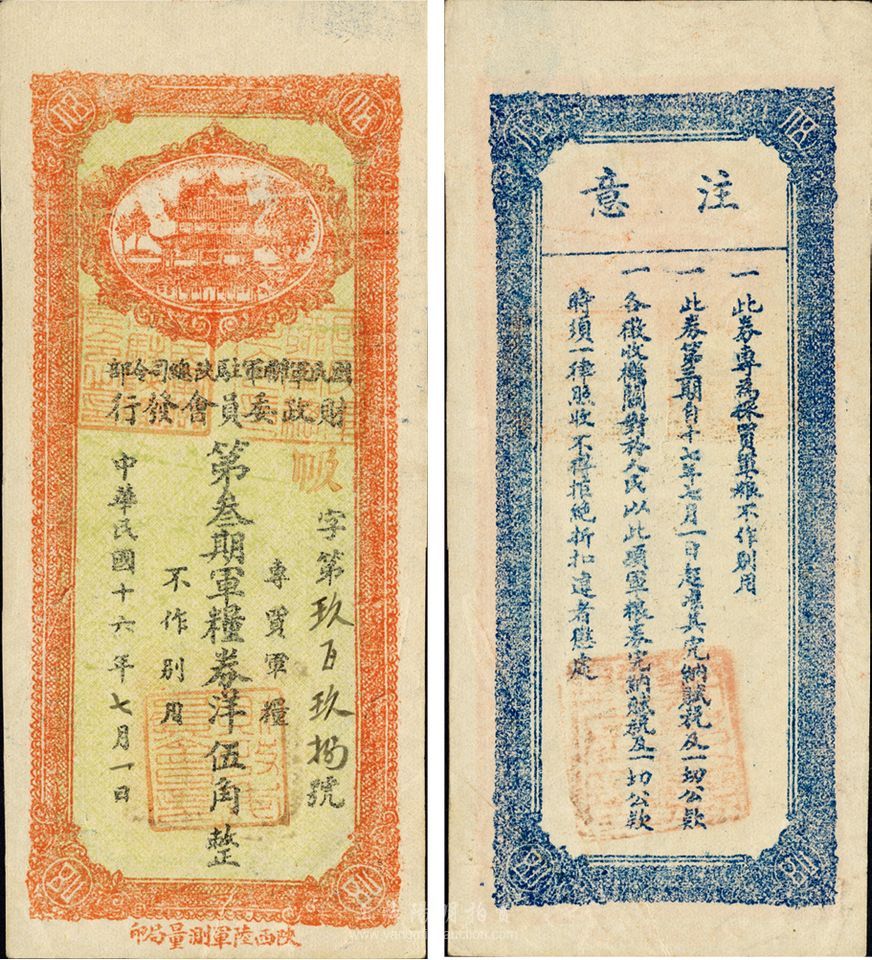 國民軍聯軍駐陝總司令部
財政委員會發行
字第玖百玖拾號
專買軍糧
不作別用
第叁期軍糧券洋伍角整
中華民國十六年七月一日
陝西陸軍測量局印
注意
一此券專為採買軍糧不作別用
一此券第三期自十七年七月一日起準其完納賦稅及一切公款
一各徵收機關對於人民以此項軍糧券完納賦稅及一切公款
時須一律照收不得拒絕折扣違者懲處